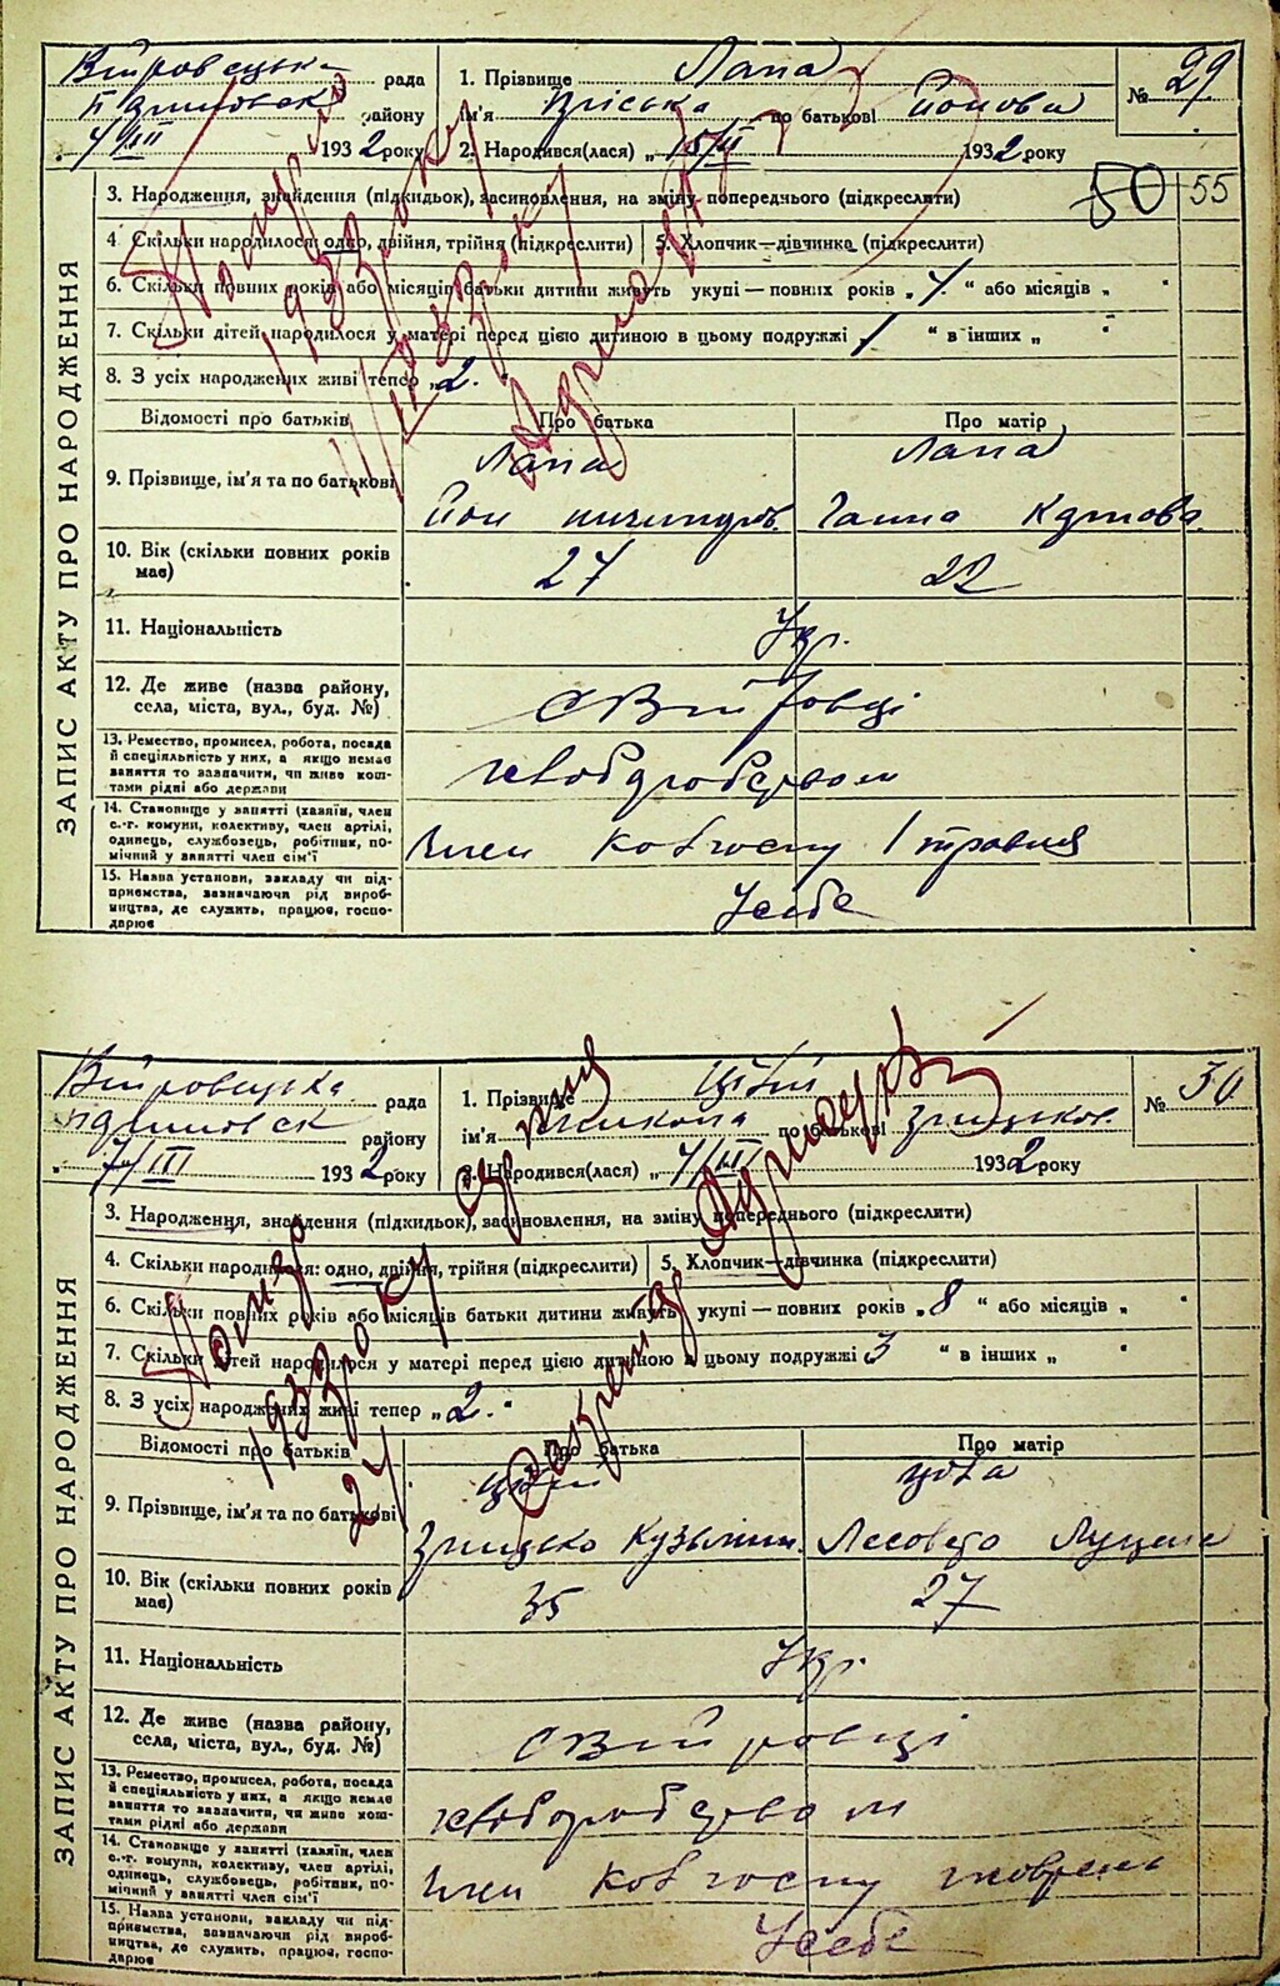 рада 1. Прізвище Лапа № 29
району ім'я Пріська по батькові Йонова
7/III 1932 року 2. Народився(лася) „ 15/II 1932 року
3. Народження, знайдення (підкидьок), засиновлення, на зміну попереднього (підкреслити) 50 55
4 Скільки народилося: одно, двійня, трійня (підкреслити) 5. Хлопчик—дівчинка (підкреслити)
6. Скільки повних років або місяців батьки дитини живуть укупі — повних років „ 4. “ або місяців „ “
7. Скільки дітей народилося у матері перед цією дитиною в цьому подружжі „ 1 “ в інших „ “
8. З усіх народжених живі тепер „ 2. “
Відомості про батьків Про батька Про матір
9. Прізвище, ім'я та по батькові Лапа Лапа
Йон Ганна
10. Вік (скільки повних років має) 27 22
11. Національність Укр.
12. Де живе (назва району, села, міста, вул., буд. №) с Війтовці
13. Ремество, промисел, робота, посада й спеціяльність у них, а якщо немає заняття то зазначити, чи живе коштами рідні або держави хліборобством
14. Становище у занятті (хазяїн, член с.-г. комуни, колективу, член артілі, одинець, службовець, робітник, помічний у занятті член сім'ї Член колгоспу 1 травня
15. Назва установи, закладу чи підприємства, зазначаючи рід виробництва, де служить, працює, господарює У себе
ЗАПИС АКТУ ПРО НАРОДЖЕННЯ
Помер
1933 року
рада 1. Прізвище Цівий № 30
району ім'я Микола по батькові Грицьков.
7/III 1932 року 2. Народився(лася) „ 4/III 1932 року
3. Народження, знайдення (підкидьок), засиновлення, на зміну попереднього (підкреслити)
4. Скільки народилося: одно, двійня, трійня (підкреслити) 5. Хлопчик—дівчинка (підкреслити)
6. Скільки повних років або місяців батьки дитини живуть укупі — повних років „ 8 “ або місяців „ “
7. Скільки дітей народилося у матері перед цією дитиною в цьому подружжі 3 “ в інших „ “
8. З усіх народжених живі тепер „ 2. “
Відомості про батьків Про батька Про матір
9. Прізвище, ім'я та по батькові
Грицько Кузьмич.
10. Вік (скільки повних років має) 35 27
11. Національність Укр.
12. Де живе (назва району, села, міста, вул., буд. №) с Війтовці
13. Ремество, промисел, робота, посада й спеціяльність у них, а якщо немає заняття то зазначити, чи живе коштами рідні або держави хліборобством
14. Становище у занятті (хазяїн, член с.-г. комуни, колективу, член артілі, одинець, службовець, робітник, помічний у занятті член сім'ї Член колгоспу
15. Назва установи, закладу чи підприємства, зазначаючи рід виробництва, де служить, працює, господарює У себе
ЗАПИС АКТУ ПРО НАРОДЖЕННЯ
Помер
1933 року